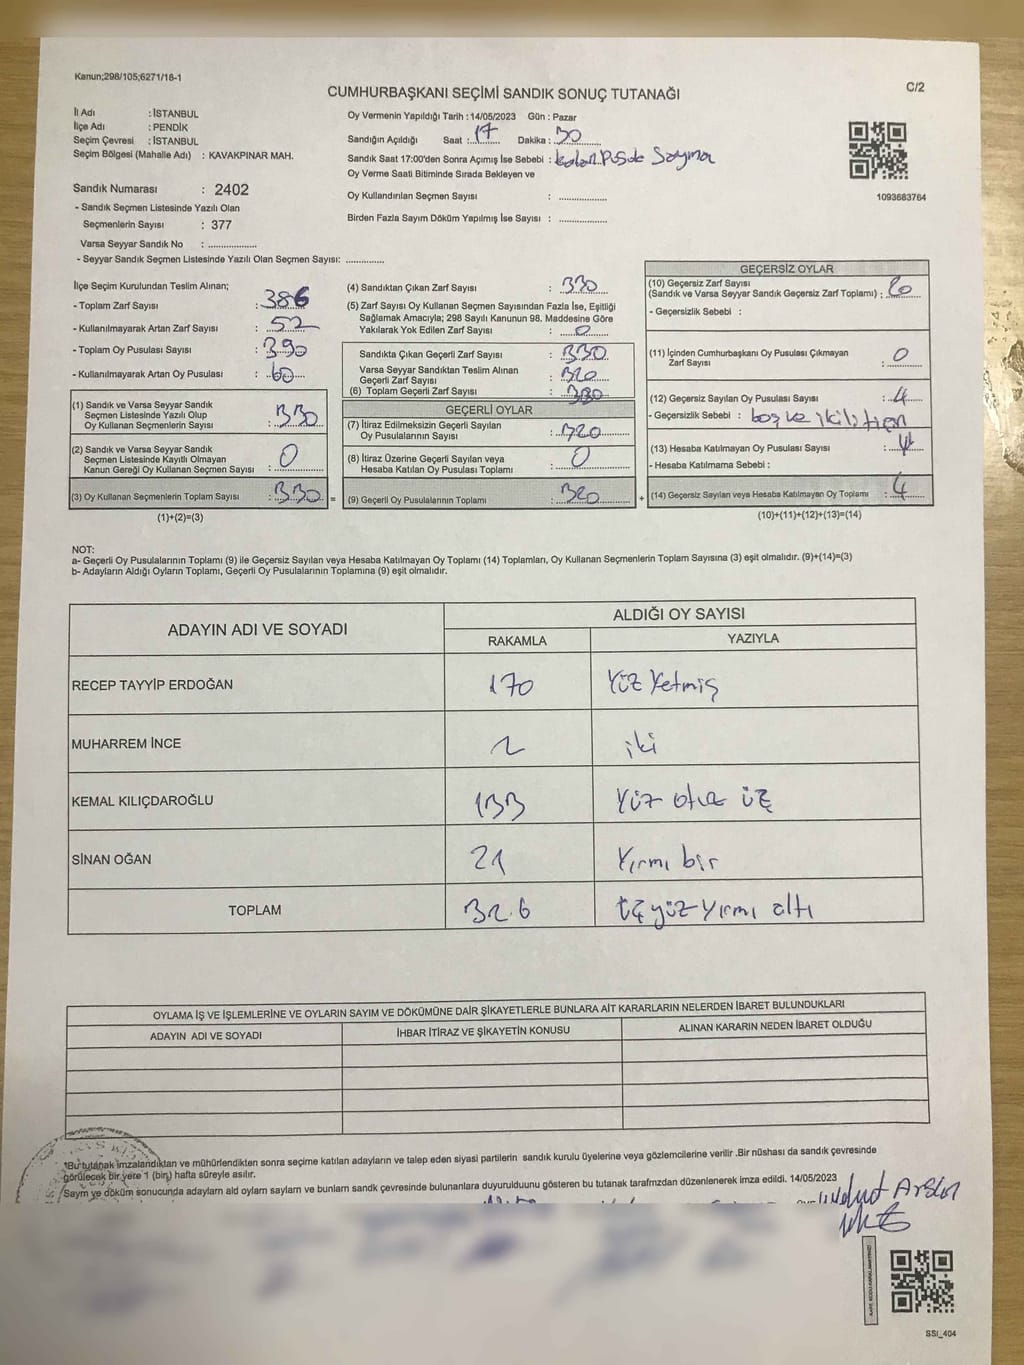 Kanun;298/105;6271/18-1
C/2
CUMHURBAŞKANI SEÇİMİ SANDIK SONUÇ TUTANAĞI
İl Adı : İSTANBUL
İlçe Adı : PENDİK
Seçim Çevresi : İSTANBUL
Seçim Bölgesi (Mahalle Adı) : KAVAKPINAR MAH.
Oy Vermenin Yapıldığı Tarih : 14/05/2023 Gün : Pazar
Sandığın Açıldığı Saat : 17 Dakika : 30
Sandık Saat 17:00'den Sonra Açımış İse Sebebi :
Oy Verme Saati Bitiminde Sırada Bekleyen ve
Oy Kullandırılan Seçmen Sayısı : ..................
Birden Fazla Sayım Döküm Yapılmış İse Sayısı : ..................
1093683764
Sandık Numarası : 2402
- Sandık Seçmen Listesinde Yazılı Olan
Seçmenlerin Sayısı : 377
Varsa Seyyar Sandık No : ..................
- Seyyar Sandık Seçmen Listesinde Yazılı Olan Seçmen Sayısı: ..............
İlçe Seçim Kurulundan Teslim Alınan;
- Toplam Zarf Sayısı : 386
- Kullanılmayarak Artan Zarf Sayısı : 52
- Toplam Oy Pusulası Sayısı : 390
- Kullanılmayarak Artan Oy Pusulası : 60
(1) Sandık ve Varsa Seyyar Sandık
Seçmen Listesinde Yazılı Olup
Oy Kullanan Seçmenlerin Sayısı : 330
(2) Sandık ve Varsa Seyyar Sandık
Seçmen Listesinde Kayıtlı Olmayan
Kanun Gereği Oy Kullanan Seçmen Sayısı : 0
(3) Oy Kullanan Seçmenlerin Toplam Sayısı : 330 =
(1)+(2)=(3)
(4) Sandıktan Çıkan Zarf Sayısı : 330
(5) Zarf Sayısı Oy Kullanan Seçmen Sayısından Fazla İse, Eşitliği
Sağlamak Amacıyla; 298 Sayılı Kanunun 98. Maddesine Göre
Yakılarak Yok Edilen Zarf Sayısı : 0
Sandıkta Çıkan Geçerli Zarf Sayısı : 330
Varsa Seyyar Sandıktan Teslim Alınan
Geçerli Zarf Sayısı : 320
(6) Toplam Geçerli Zarf Sayısı : 330
GEÇERLİ OYLAR
(7) İtiraz Edilmeksizin Geçerli Sayılan
Oy Pusulalarının Sayısı : 320
(8) İtiraz Üzerine Geçerli Sayılan veya
Hesaba Katılan Oy Pusulası Toplamı : 0
(9) Geçerli Oy Pusulalarının Toplamı : 320 +
GEÇERSİZ OYLAR
(10) Geçersiz Zarf Sayısı
(Sandık ve Varsa Seyyar Sandık Geçersiz Zarf Toplamı) :
- Geçersizlik Sebebi :
(11) İçinden Cumhurbaşkanı Oy Pusulası Çıkmayan
Zarf Sayısı : 0
(12) Geçersiz Sayılan Oy Pusulası Sayısı : 4
- Geçersizlik Sebebi : boş ve
(13) Hesaba Katılmayan Oy Pusulası Sayısı : 4
- Hesaba Katılmama Sebebi :
(14) Geçersiz Sayılan veya Hesaba Katılmayan Oy Toplamı : 4
(10)+(11)+(12)+(13)=(14)
NOT:
a- Geçerli Oy Pusulalarının Toplamı (9) ile Geçersiz Sayılan veya Hesaba Katılmayan Oy Toplamı (14) Toplamları, Oy Kullanan Seçmenlerin Toplam Sayısına (3) eşit olmalıdır. (9)+(14)=(3)
b- Adayların Aldığı Oyların Toplamı, Geçerli Oy Pusulalarının Toplamına (9) eşit olmalıdır.
ADAYIN ADI VE SOYADI
ALDIĞI OY SAYISI
RAKAMLA YAZIYLA
RECEP TAYYİP ERDOĞAN 170 Yüz Yetmiş
MUHARREM İNCE 2 iki
KEMAL KILIÇDAROĞLU 133 Yüz otuz üç
SİNAN OĞAN 21 Yırmı bir
TOPLAM 326 üçyüz yırmı altı
OYLAMA İŞ VE İŞLEMLERİNE VE OYLARIN SAYIM VE DÖKÜMÜNE DAİR ŞİKAYETLERLE BUNLARA AİT KARARLARIN NELERDEN İBARET BULUNDUKLARI
ADAYIN ADI VE SOYADI İHBAR İTİRAZ VE ŞİKAYETİN KONUSU ALINAN KARARIN NEDEN İBARET OLDUĞU
*Bu tutanak imzalandıktan ve mühürlendikten sonra seçime katılan adayların ve talep eden siyasi partilerin sandık kurulu üyelerine veya gözlemcilerine verilir .Bir nüshası da sandık çevresinde
görülecek bir yere 1 (bir) hafta süreyle asılır.
Sayım ve döküm sonucunda adayların ald oyların sayıları ve bunların sandık çevresinde bulunanlara duyurulduunu gösteren bu tutanak tarafmzdan düzenlenerek imza edildi. 14/05/2023
Arslan
SSI_404